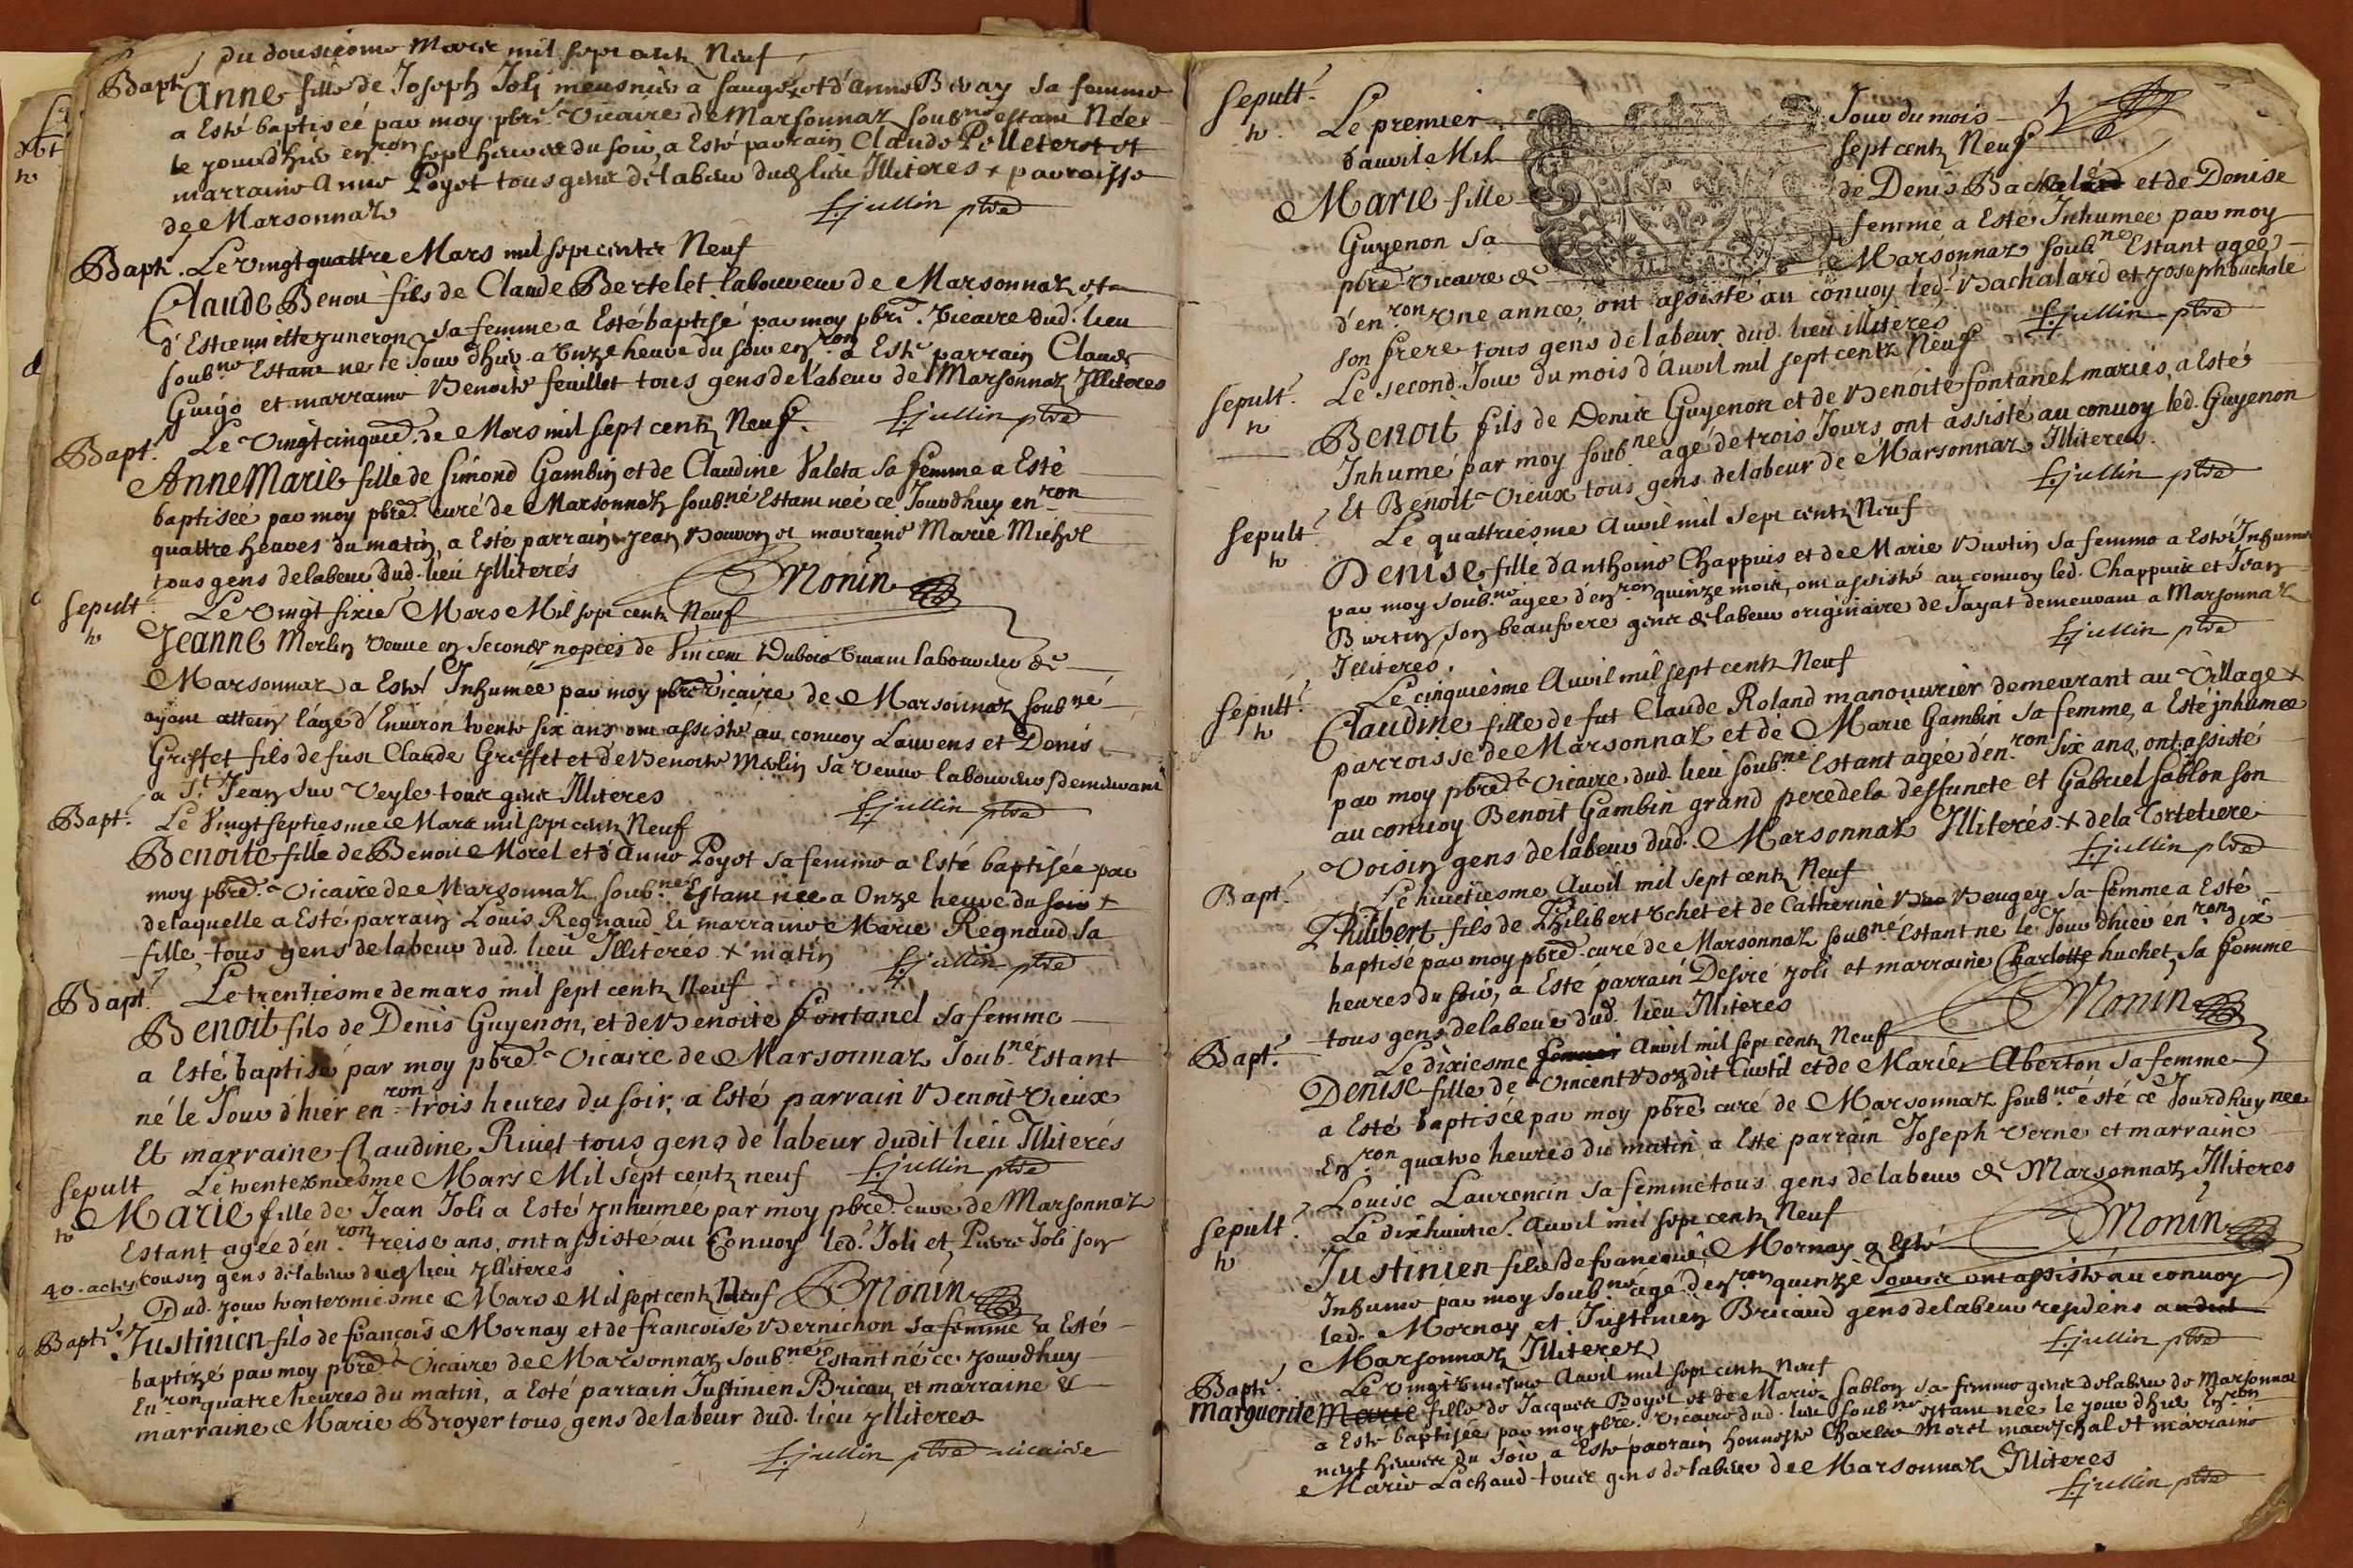 du dousiesme Mars mil sept cents Neuf
Bapt. Anne fille de Joseph Joli meusnier a et d'anne Bivay sa femme
a Esté baptiseé par moy pbre. Vicaire de Marsonnaz soubne. estant Née
le jourd'hier enron sept heures du soir, a Esté parrain Claude Pelleterat et
marraine Anne Poyet tous gens de labeur dud lieu Illiteres + parroisse
de Marsonnaz
E. jullin pbre
Bapt. Le Vingt quattre Mars mil sept cents Neuf
Claude Benoit fils de Claude Bertelet laboureur de Marsonnaz et
d'Estiennette juneron sa femme a Esté baptisé par moy pbre. Vicaire dud. lieu
soubne Estant ne le Jour d'hier a Unze heure du soir enron a Esté parrain Claude
Guigo et marraine Benoite feuillet tous gens de labeur de Marsonnaz Illiteres
Bapt. Le Vingt cinquie. de Mars mil sept cents Neuf. E. jullin pbre
Anne Marie fille de Simond Gambin et de Claudine Valeta sa femme a Esté
baptisée par moy pbre. curé de Marsonnaz soubné Estant neé ce Jourdhuy enron
quattre heures du matin, a Esté parrain Jean Bouvon et marraine Marie Michel
tous gens de labeur Dud. lieu ylliterés
Monin
sepult. Le Vingt sixie Mars Mil sept cents Neuf
h
Jeanne Merlin Veuve en secondes nopces de Vincent Dubois Vivant laboureur de
Marsonnaz a Esté Inhumée par moy pbre Vicaire de Marsonnaz soubné
ayant attein l'age d'Environ trente six ans ont assisté au convoy Laurens et Denis
Griffet fils de fut Claude Griffet et de Benoite Merlin sa Veuve laboureurs demeurant
a St. Jean sur Veyle tous gens Illiteres
E. jullin pbre
Bapt. Le Vingt septiesme Mars mil sept cents Neuf
Benoite fille de Benoit Morel et d'Anne Poyot sa femme a Esté baptisée par
moy pbre. Vicaire de Marsonnaz soubne Estant née a Onze heure du soir +
de laquelle a Esté parrain Louis Regnaud Et marraine Marie Regnaud sa
fille, tous gens de labeur dud. lieu Illiterés + matin E. jullin pbre
Bapt. Le trentiesme de mars mil sept cents Neuf
Benoit fils de Denis Guyenon, et de Benoite Fontanel sa femme
a Esté baptisé par moy pbre. Vicaire de Marsonnaz Soubne Estant
né le Jour d'hier enron trois heures du soir, a Esté parrain Benoit Vieux
Et marraine Claudine Rivet tous gens de labeur dudit lieu Illiterés
sepult Le trente Vniesme Mars Mil sept cents neuf E. jullin pbre
h
Marie fille de Jean Joli a Esté ynhumée par moy pbre. curé de Marsonnaz
Estant agée d'enron treise ans, ont assisté au Convoy led. Joli et Pierre Joli son
40. actes cousin gens de labeur dud lieu yllitéres
Dud. jour trente vniesme Mars Mil sept cents Neuf Monin
Bapt. Justinien fils de françois Mornay et de francoise Bernichon sa femme a Esté
baptizé par moy pbre. Vicaire de Marsonnaz Soubne Estant né ce jourdhuy
Enron quatre heures du matin, a Esté parrain Justinien Bricau et marraine &
marraine Marie Broyer tous gens de labeur dud. lieu ylliteres
E. jullin pbre vicaire
sepult. Le premier Jour du mois
h
d'avril Mil sept cents Neuf
Marie fille de Denis Bachelard et de Denise
Guyenon sa femme a Esté Inhumée par moy
pbre Vicaire de Marsonnaz soubne Estant agée
d'enron Une annee, ont assisté au convoy led. Bachalard et joseph
son frere tous gens de labeur dud. lieu illiteres E. jullin pbre
sepult. Le second Jour du mois d'Avril mil sept cents Neuf
h
Benoit fils de Denis Guyenon et de Benoite fontanel mariés, a Esté
Inhumé par moy soubne agé de trois Jours ont assisté au convoy led. Guyenon
Et Benoit Vieux tous gens de labeur de Marsonnaz Illiteres.
E. jullin pbre
sepult. Le quattriesme Avril mil sept cents Neuf
h
Denise fille d'anthoine Chappuis et de Marie Burtin sa femme a Esté Inhumée
par moy soubne. agee d'enron quinze mois, ont assisté au convoy led. Chappuis et Jean
Burtin son beaufrere gens de labeur originaire de Jayat demeurant a Marsonnaz
Illiteres.
E. jullin pbre
sepult. Le cinquiesme Avril mil sept cents Neuf
h
Claudine fille de fut Claude Roland manouvrier demeurant au Village +
parroisse de Marsonnaz et de Marie Gambin sa femme, a Esté jnhumee
par moy pbre. Vicaire dud. lieu soubne. Estant agée d'enron six ans, ont assisté
au convoy Benoit Gambin grand pere de la deffuncte et Gabriel Sablon son
Voisin gens de labeur dud. Marsonnaz Illiterés + de la Tortetiere
E. jullin pbre
Bapt. Le huictiesme Avril mil sept cents Neuf
Philibert fils de Philibert Vchet et de Catherine Beugey sa femme a Esté
baptisé par moy pbre. curé de Marsonnaz soubné Estant ne le Jour dhier enron dix
heures du soir, a Esté parrain Desiré joli et marraine Charlotte huchet, sa femme
tous gens de labeur dud. lieu Illiteres
Monin
Bapt. Le dixiesme Avril mil sept cents Neuf
Denise fille de Vincent dit et de Marie Aberton sa femme
a Esté baptisée par moy pbre curé de Marsonnaz soubne. ésté ce Jourdhuy née
Enron quatre heures du matin a Esté parrain Joseph Verne et marraine
Louise Laurencin sa femme tous gens de labeur de Marsonnaz Illiteres
sepult. Le dix huitie. Avril mil sept cents Neuf
Monin
h
Justinien fils de francois Mornay a Esté
Inhumé par moy soubné agé d'enron quinze Jours ont assisté au convoy
led. Mornay et Justinien Bricaud gens de labeur residens audit
Marsonnaz Illiteres
E. jullin pbre
Bapt. Le Vingt Avril mil sept cents Neuf
Marguerite Marie fille de Jacques Boyet et de Marie Sablon sa femme gens de labeur de Marsonnaz
a Esté baptisée par moy pbre. Vicaire dud. lieu soubne estant née le jour dhier Enron
neuf heures du soir a Esté parrain honneste Charles Morel mareschal et marraine
Marie Lachaud tous gens de labeur de Marsonnaz Illiteres
E. jullin pbre